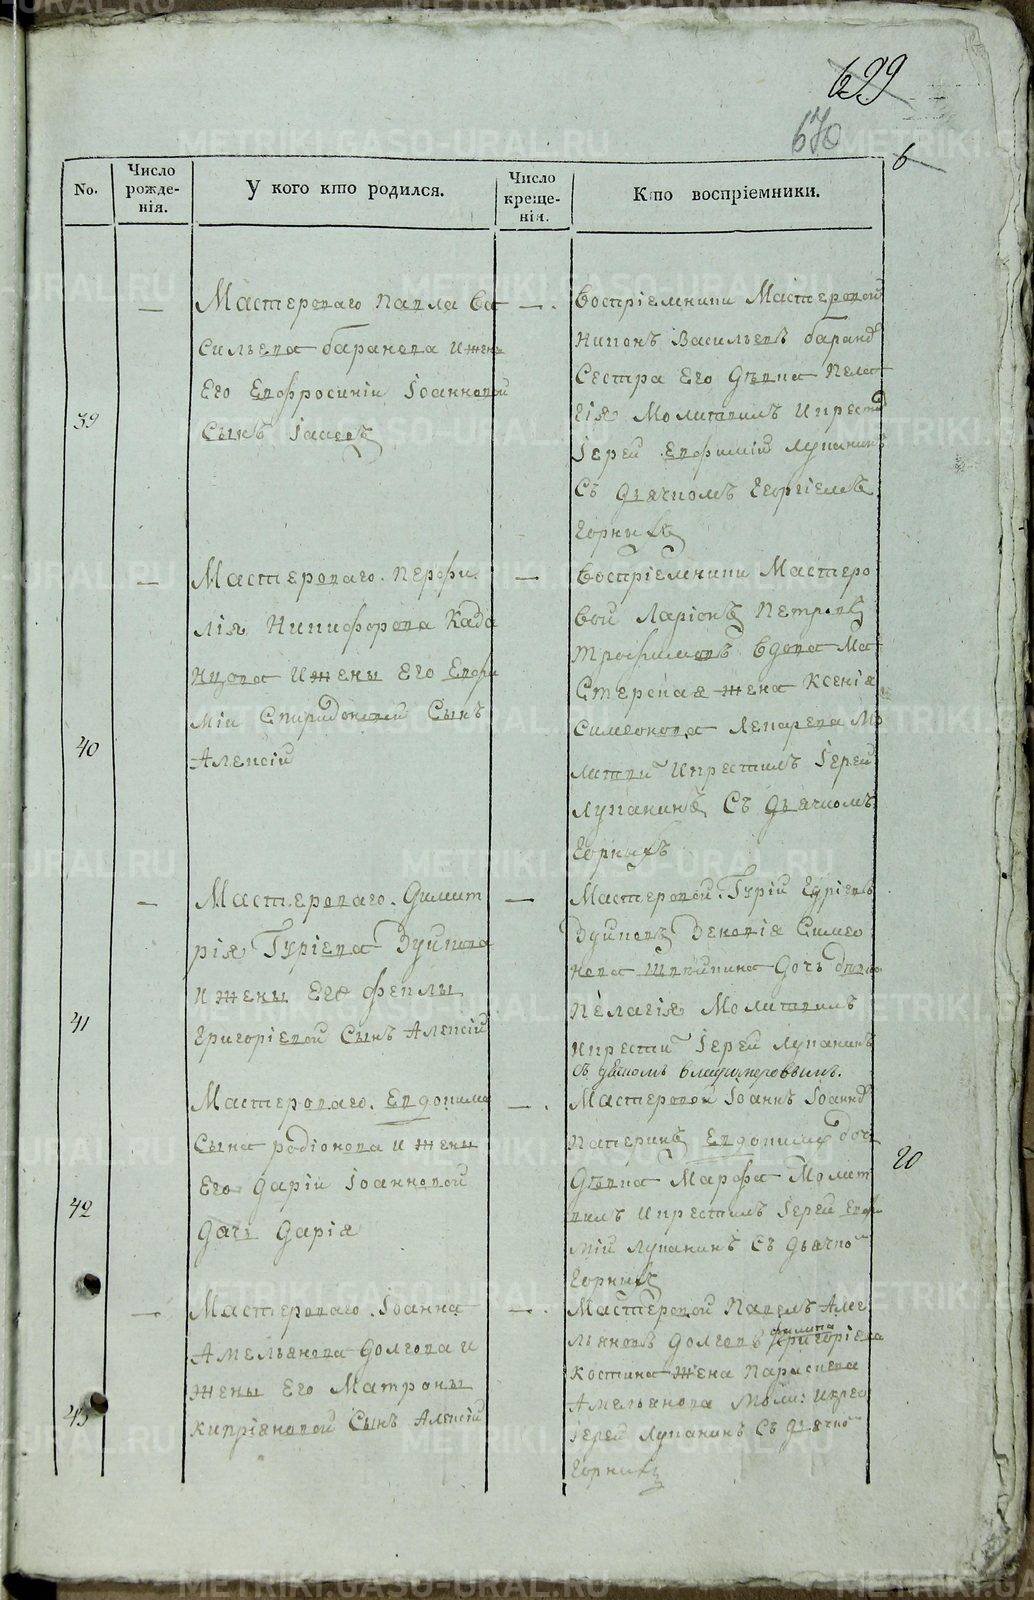 699
670
6
No.
Число рожде-нія.
У кого кто родился.
Число креще-нія.
Кто воспріемники.
39
Мастероваго Павла Ва
сильева баранова и жены
Его Евфросиніи Іоанновой
Сынъ Іасовъ
Воспріемники Мастеровой
Никонъ Васильевъ баранов
Сестра Его Дѣвка Пела
гія Молитвилъ и крестил
Іерей Евфимій Лупанинъ
Съ дьячкомъ Георгіемъ
Горныхъ
40
Мастероваго Перфи
лія Никифорова Кадо
нцова и жены Его Евфи
міи Спиридоновой Сынъ
Алексій
Воспріемники Мастеро
вой Ларіонъ Петровъ
Трофимовъ вдова Ма
стерская жена Ксенія
Симеонова Лекарева Мо
литви и крестилъ Іерей
Лупанинъ Съ дьячкомъ
Горныхъ
41
Мастероваго Димит
рія Гуріева Зуйкова
и жены Его Феклы
Григоріевой Сынъ Алексій
Мастеровой Гурій Гуріевъ
Зуйковъ Зеновія Симео
нова дочь
Пелагія Молитвилъ
и крести Іерей Лупанинъ
42
Мастероваго Евдокима
Сына родіонова и жены
Его Даріи Іоанновой
Дочь Дарія
Мастеровой Іоаннъ Іоанно
Катеринъ Евдокима дочь
Дѣвка Марфа Молит
вилъ и крестилъ Іерей Евфи
мій Лупанинъ Съ дьячко
Горныхъ
20
43
Мастероваго Іоанна
Амельянова Долгова и
жены Его Матроны
Кипріяновой Сынъ Алексій
Мастеровой Павелъ Аме
льяновъ Долговъ Филипа Григоріева
Костина жена Параскева
Амельянова Моли: и крес
Іерей Лупанинъ Съ дьячко
Горныхъ
METRIKI.GASO-URAL.RU